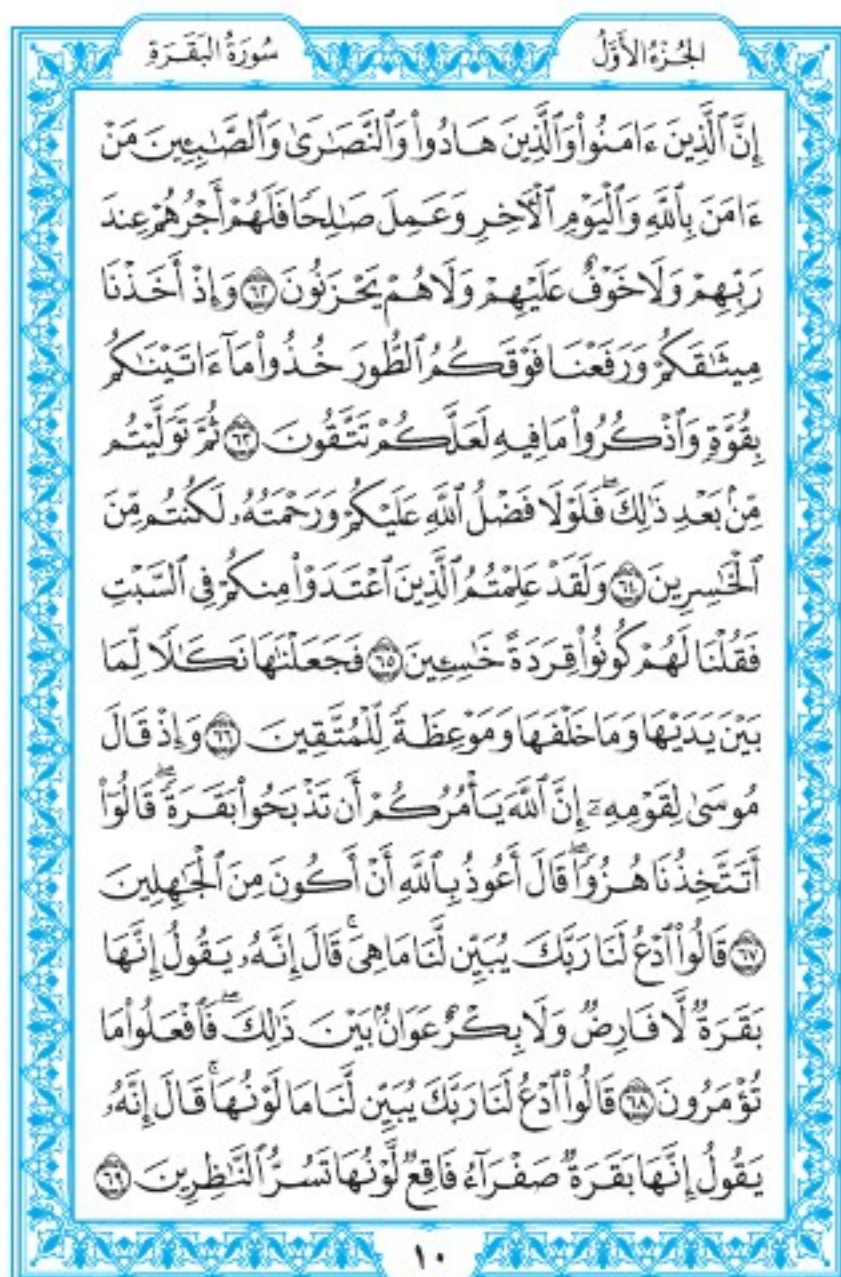 الجُزْءُ الأَوَّلُ
سُورَةُ البَقَرَةِ
إِنَّ ٱلَّذِينَ ءَامَنُوا۟ وَٱلَّذِينَ هَادُوا۟ وَٱلنَّصَٰرَىٰ وَٱلصَّٰبِـِٔينَ مَنْ
ءَامَنَ بِٱللَّهِ وَٱلْيَوْمِ ٱلْـَٔاخِرِ وَعَمِلَ صَٰلِحًا فَلَهُمْ أَجْرُهُمْ عِندَ
رَبِّهِمْ وَلَا خَوْفٌ عَلَيْهِمْ وَلَا هُمْ يَحْزَنُونَ ٦٢ وَإِذْ أَخَذْنَا
مِيثَٰقَكُمْ وَرَفَعْنَا فَوْقَكُمُ ٱلطُّورَ خُذُوا۟ مَآ ءَاتَيْنَٰكُم
بِقُوَّةٍ وَٱذْكُرُوا۟ مَا فِيهِ لَعَلَّكُمْ تَتَّقُونَ ٦٣ ثُمَّ تَوَلَّيْتُم
مِّنۢ بَعْدِ ذَٰلِكَ ۖ فَلَوْلَا فَضْلُ ٱللَّهِ عَلَيْكُمْ وَرَحْمَتُهُۥ لَكُنتُم مِّنَ
ٱلْخَٰسِرِينَ ٦٤ وَلَقَدْ عَلِمْتُمُ ٱلَّذِينَ ٱعْتَدَوْا۟ مِنكُمْ فِى ٱلسَّبْتِ
فَقُلْنَا لَهُمْ كُونُوا۟ قِرَدَةً خَٰسِـِٔينَ ٦٥ فَجَعَلْنَٰهَا نَكَٰلًا لِّمَا
بَيْنَ يَدَيْهَا وَمَا خَلْفَهَا وَمَوْعِظَةً لِّلْمُتَّقِينَ ٦٦ وَإِذْ قَالَ
مُوسَىٰ لِقَوْمِهِۦٓ إِنَّ ٱللَّهَ يَأْمُرُكُمْ أَن تَذْبَحُوا۟ بَقَرَةً ۖ قَالُوٓا۟
أَتَتَّخِذُنَا هُزُوًا ۖ قَالَ أَعُوذُ بِٱللَّهِ أَنْ أَكُونَ مِنَ ٱلْجَٰهِلِينَ
٦٧ قَالُوا۟ ٱدْعُ لَنَا رَبَّكَ يُبَيِّن لَّنَا مَا هِىَ ۚ قَالَ إِنَّهُۥ يَقُولُ إِنَّهَا
بَقَرَةٌ لَّا فَارِضٌ وَلَا بِكْرٌ عَوَانٌۢ بَيْنَ ذَٰلِكَ ۖ فَٱفْعَلُوا۟ مَا
تُؤْمَرُونَ ٦٨ قَالُوا۟ ٱدْعُ لَنَا رَبَّكَ يُبَيِّن لَّنَا مَا لَوْنُهَا ۚ قَالَ إِنَّهُۥ
يَقُولُ إِنَّهَا بَقَرَةٌ صَفْرَآءُ فَاقِعٌ لَّوْنُهَا تَسُرُّ ٱلنَّٰظِرِينَ ٦٩
١٠